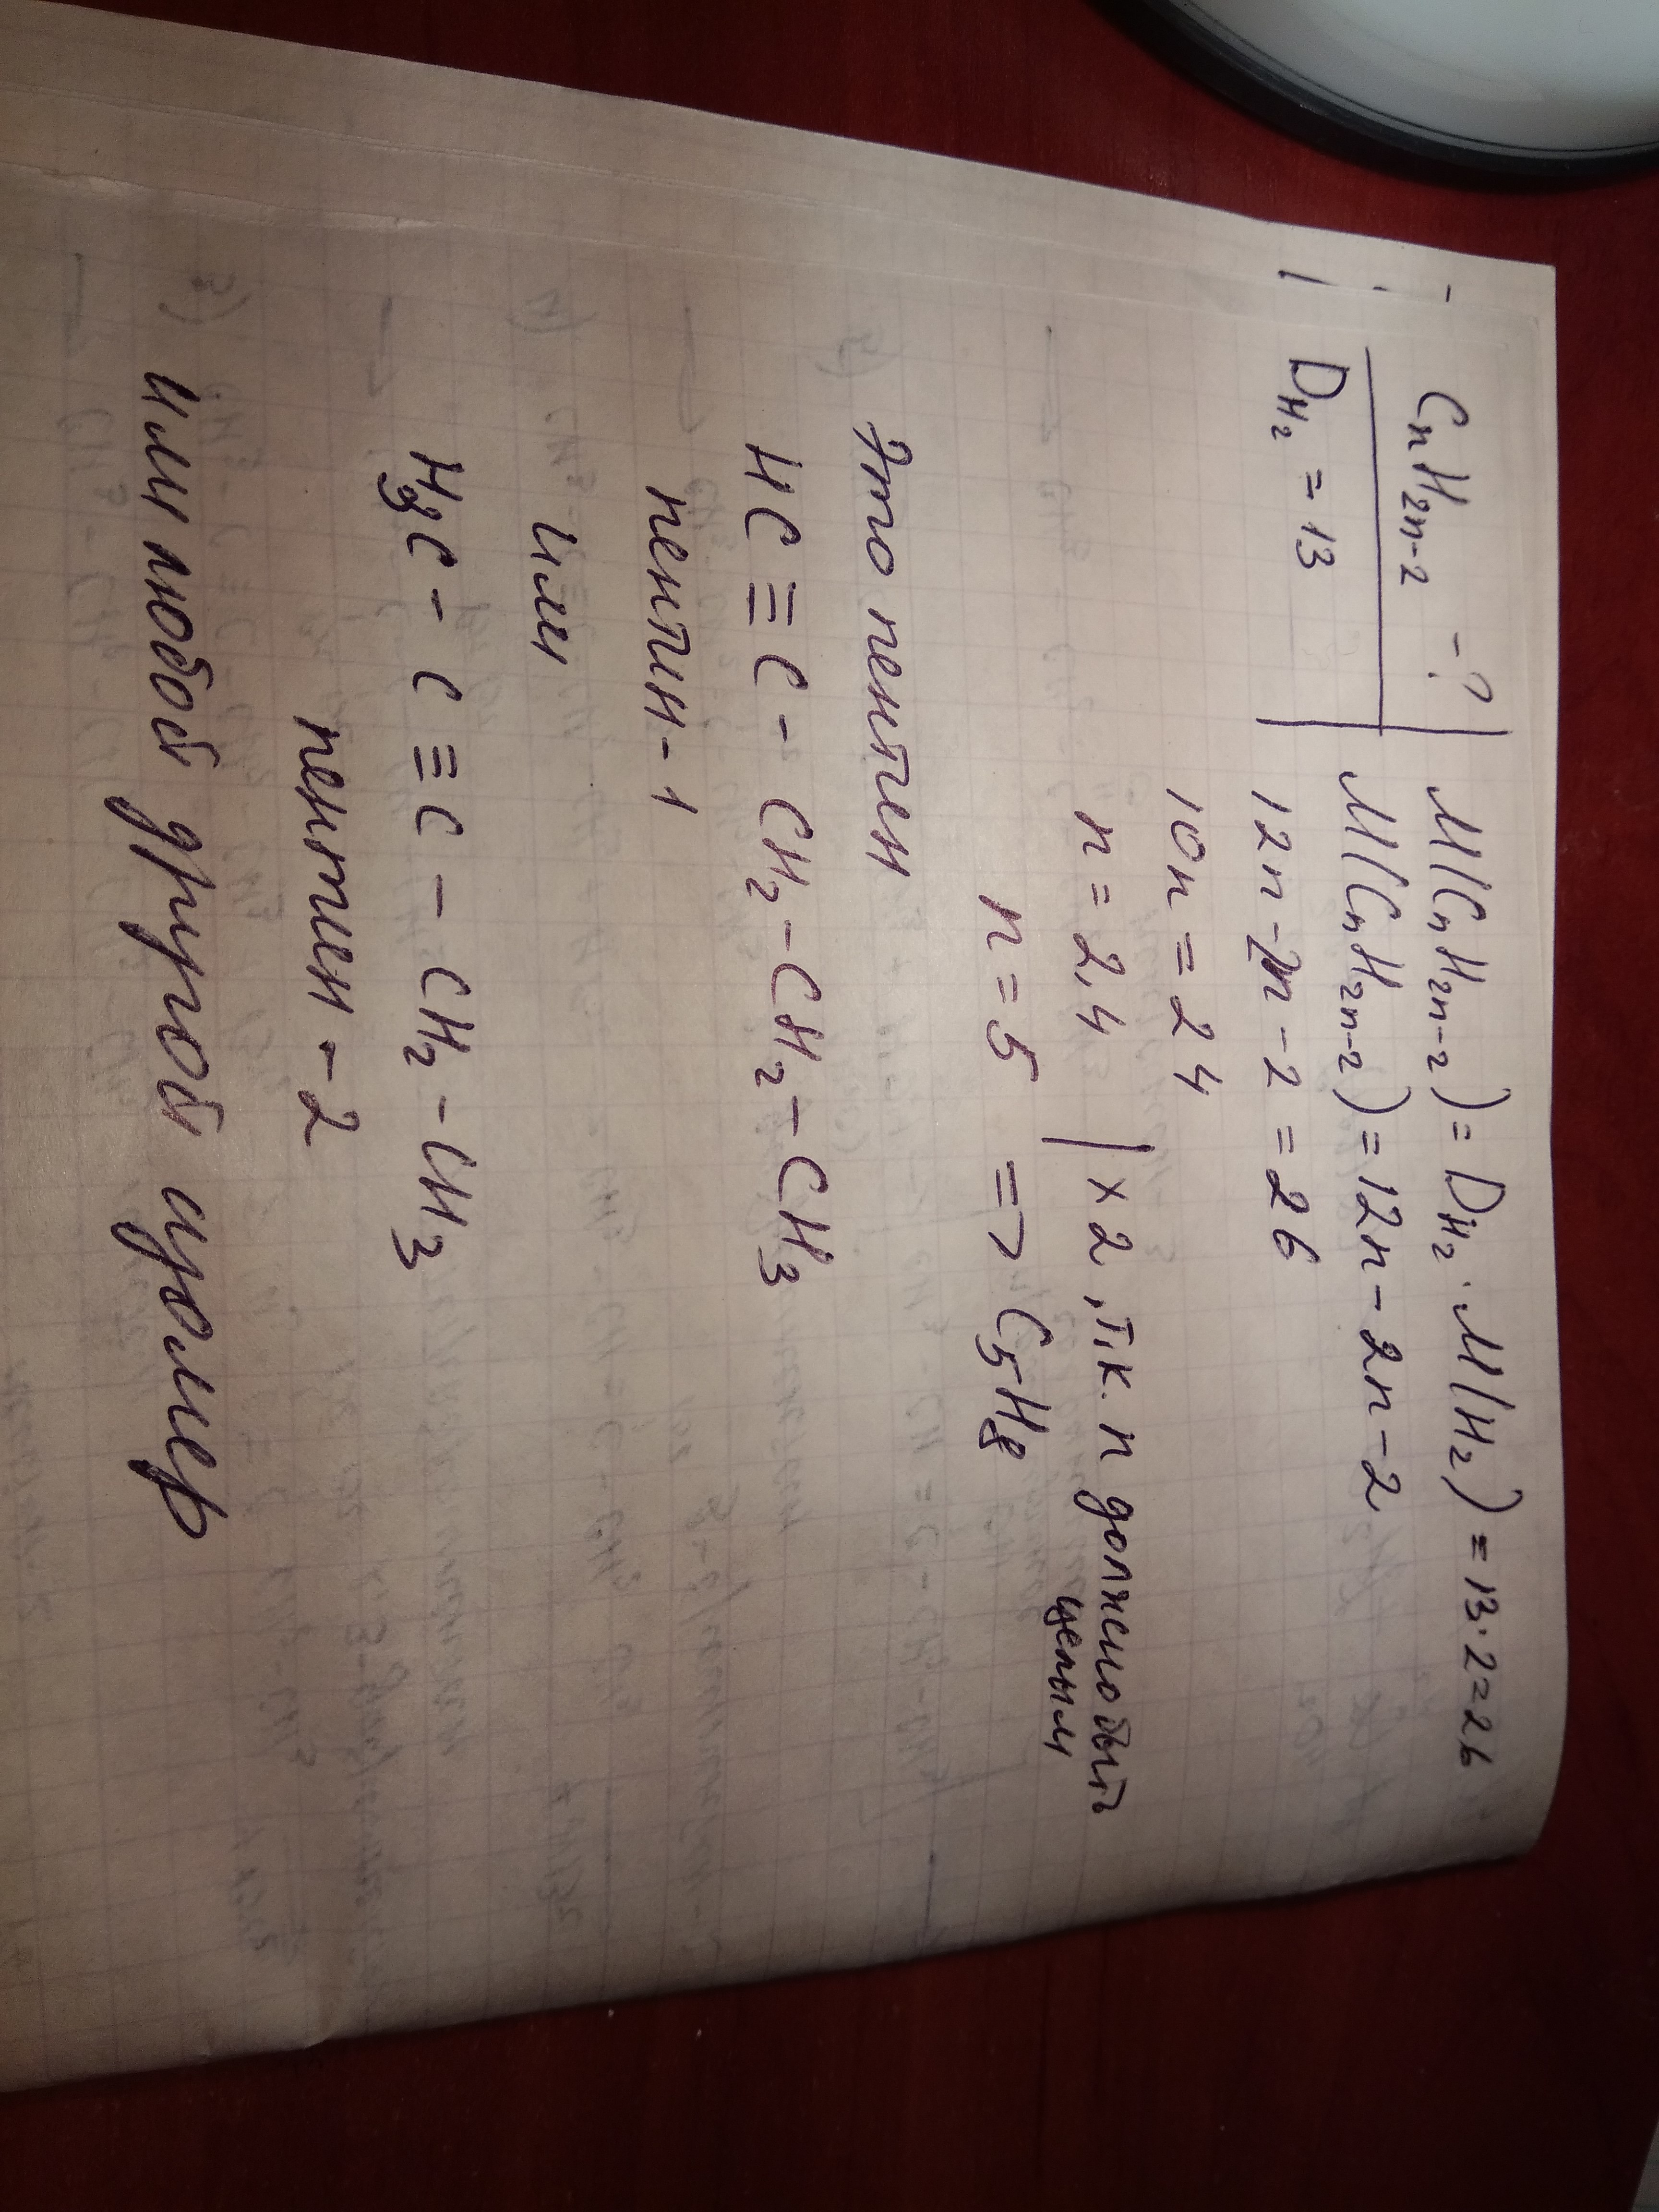 CnH2n-2 -?
DH2 = 13
M(CnH2n-2) = DH2 · M(H2) = 13·2=26
M(CnH2n-2) = 12n - 2n - 2
12n - 2n - 2 = 26
10n = 24
n = 2,4 | x 2, т.к. n должно быть целым
n = 5 => C5H8
Это пентен
HC ≡ C - CH2 - CH2 - CH3
пентин-1
или
H3C - C ≡ C - CH2 - CH3
пентен - 2
или любой другой изомер